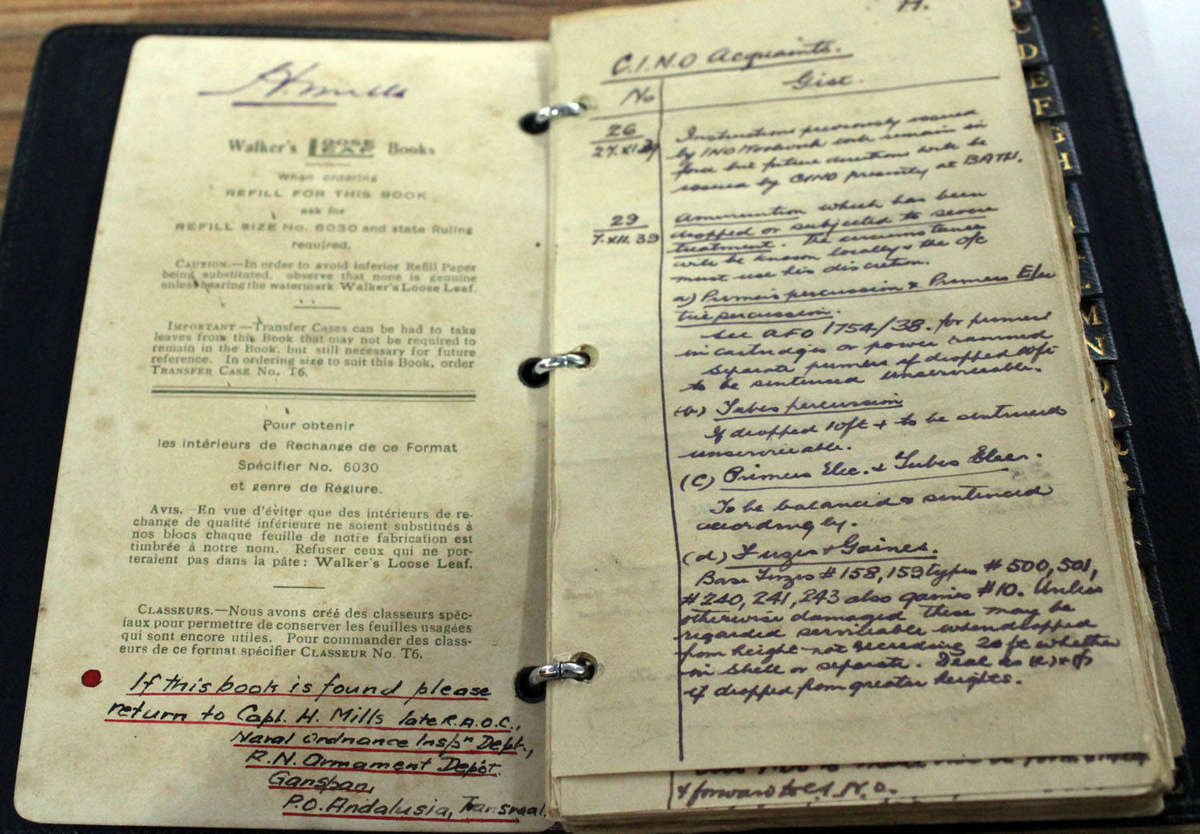 H. Mills
Walker's LOOSE LEAF Books
When ordering
REFILL FOR THIS BOOK
ask for
REFILL SIZE No. 6030 and state Ruling
required.
CAUTION.—In order to avoid inferior Refill Paper
being substituted, observe that none is genuine
unless bearing the watermark Walker's Loose Leaf.
IMPORTANT—Transfer Cases can be had to take
leaves from this Book that may not be required to
remain in the Book, but still necessary for future
reference. In ordering size to suit this Book, order
TRANSFER CASE No. T6.
Pour obtenir
les intérieurs de Rechange de ce Format
Spécifier No. 6030
et genre de Réglure.
AVIS.—En vue d'éviter que des intérieurs de re-
change de qualité inférieure ne soient substitués à
nos blocs chaque feuille de notre fabrication est
timbrée à notre nom. Refuser ceux qui ne por-
teraient pas dans la pâte: Walker's Loose Leaf.
CLASSEURS.—Nous avons créé des classeurs spéc-
iaux pour permettre de conserver les feuilles usagées
qui sont encore utiles. Pour commander des class-
eurs de ce format spécifier CLASSEUR No. T6.
If this book is found please
return to Capt. H. Mills late R.A.O.C.,
Naval Ordnance Insp'n Dept.,
R.N. Armament Depôt.
Ganspan,
P.O. Andalusia, Transvaal.
H.
C.I.N.O Acquaints.
No Gist.
26
27.XI.39
Instructions previously issued
by INO Woolwich will remain in
force but future directions will be
issued by CINO presently at BATH.
29
7.XII.39
Ammunition which has been
dropped or subjected to severe
treatment. The circumstances
will be known locally & the O/C
must use his discretion.
a) Primers percussion & Primers Elec
tric percussion.
See AFO 1754/38. for primers
in cartridges or power rammed
Separate primers if dropped 10ft
to be sentenced unserviceable.
(b) Tubes percussion
If dropped 10ft + to be sentenced
unserviceable.
(C) Primers Elec. & Tubes Elec.
To be balanced & sentenced
accordingly.
(d) Fuzes & Gaines.
Base Fuzes # 158, 159 types # 500, 501,
# 240, 241, 243 also gaines # 10. Unless
otherwise damaged these may be
regarded serviceable when dropped
from height not exceeding 20 ft whether
in shell or separate. Deal as (e) &
if dropped from greater heights.
& forward to C.I.N.O.
C
D
E
F
G
H
M
N